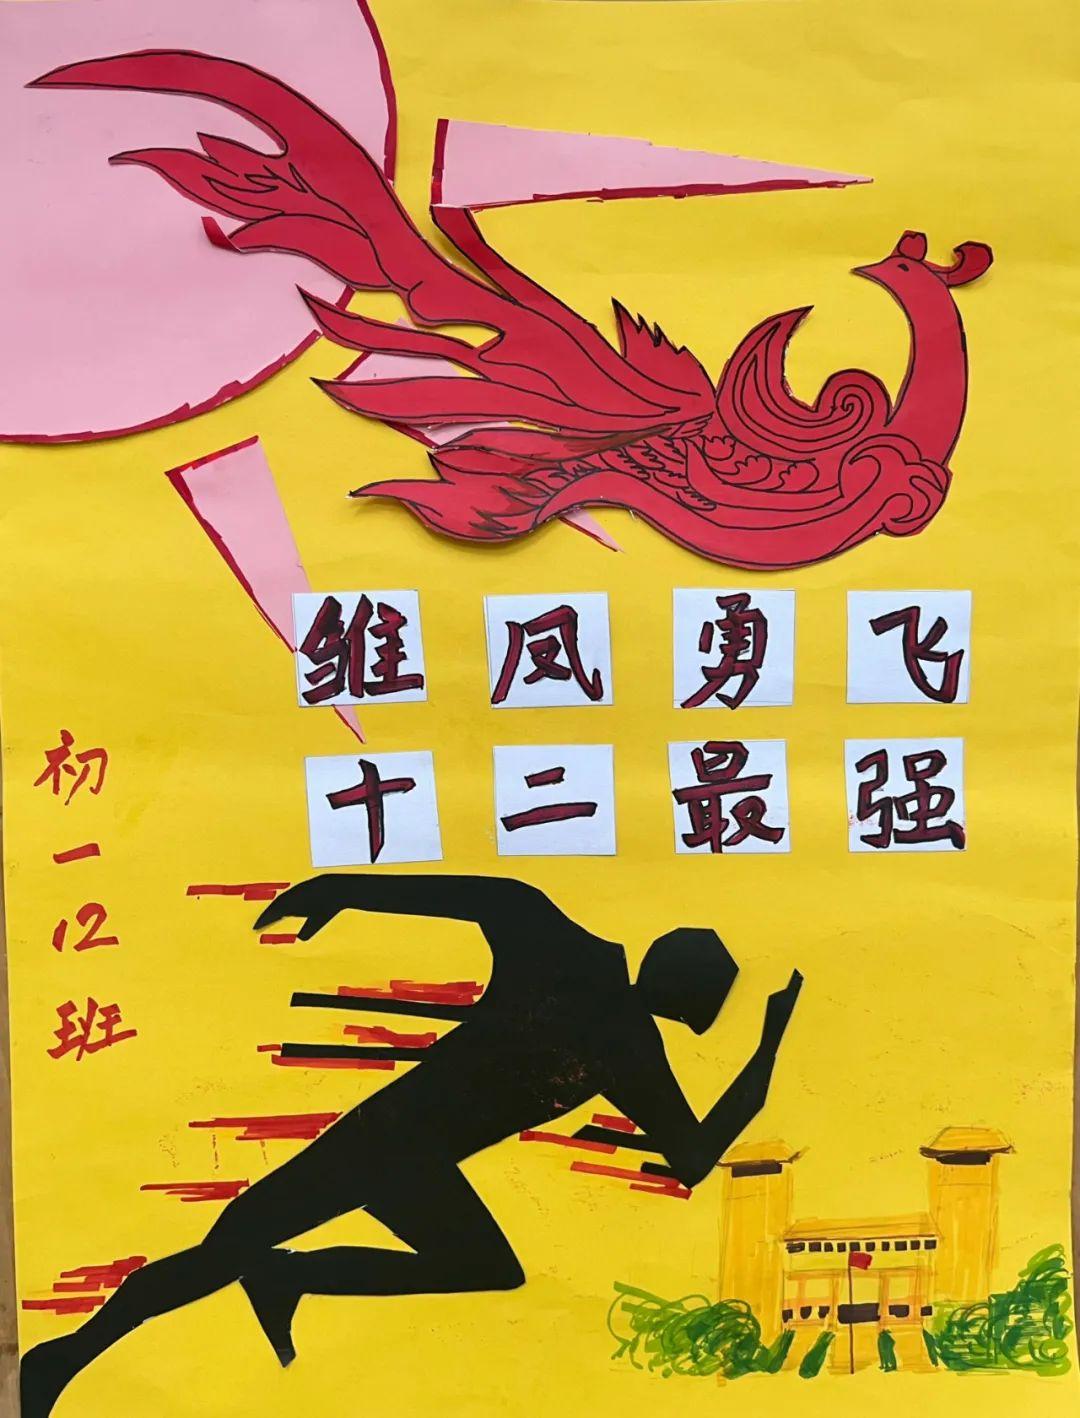 雏凤勇飞
十二最强
初一12班